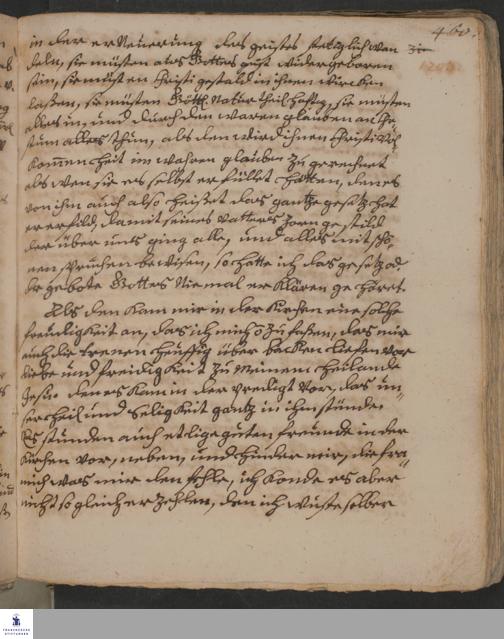 460.
in der erneuerung des geistes stetiglich wan
deln, sie müsten aus Gottes geist wiedergebohren
sein, sie müsten Christi gestald in ihnen würcken
laßen, sie müsten Göttl. Natur theilhafftig, sie müsten
alles in, und durch den waren glauben an Chri
stum alles thun, als den wird ihnen Christi Vol
kommenheit im wahren glauben zu gerechnet
als wen sie es selbst erfüllet hätten, den es
von ihm auch also heißet das gantze gesetz hat
er erfüld, damit seines Vatters Zorn gestild
der über uns ging alle, und alles mit schö
nen sprüchen bewisen, so hatte ich das gesetz od.
die gebote Gottes niemal erklären gehöret.
Als den kam mir in der Kirchen eine solche
freudigkeit an, das ich mich zu faßen, das mir
auch die trenen heuffig über backen lieffen vor
liebe und freidigkeit zu meinem heilande
Jesu. den es kam in der predigt vor, das un
ser heil und Seligkeit gantz in ihm stünde.
Es stunden auch etlige guten freunde in der
Kirchen vor, neben, und hinder mir, die fra
mich was mir den fehle, ich konde es aber
nicht so gleich erzehlen, den ich wuste selber
FRANCKESCHE
STIFTUNGEN